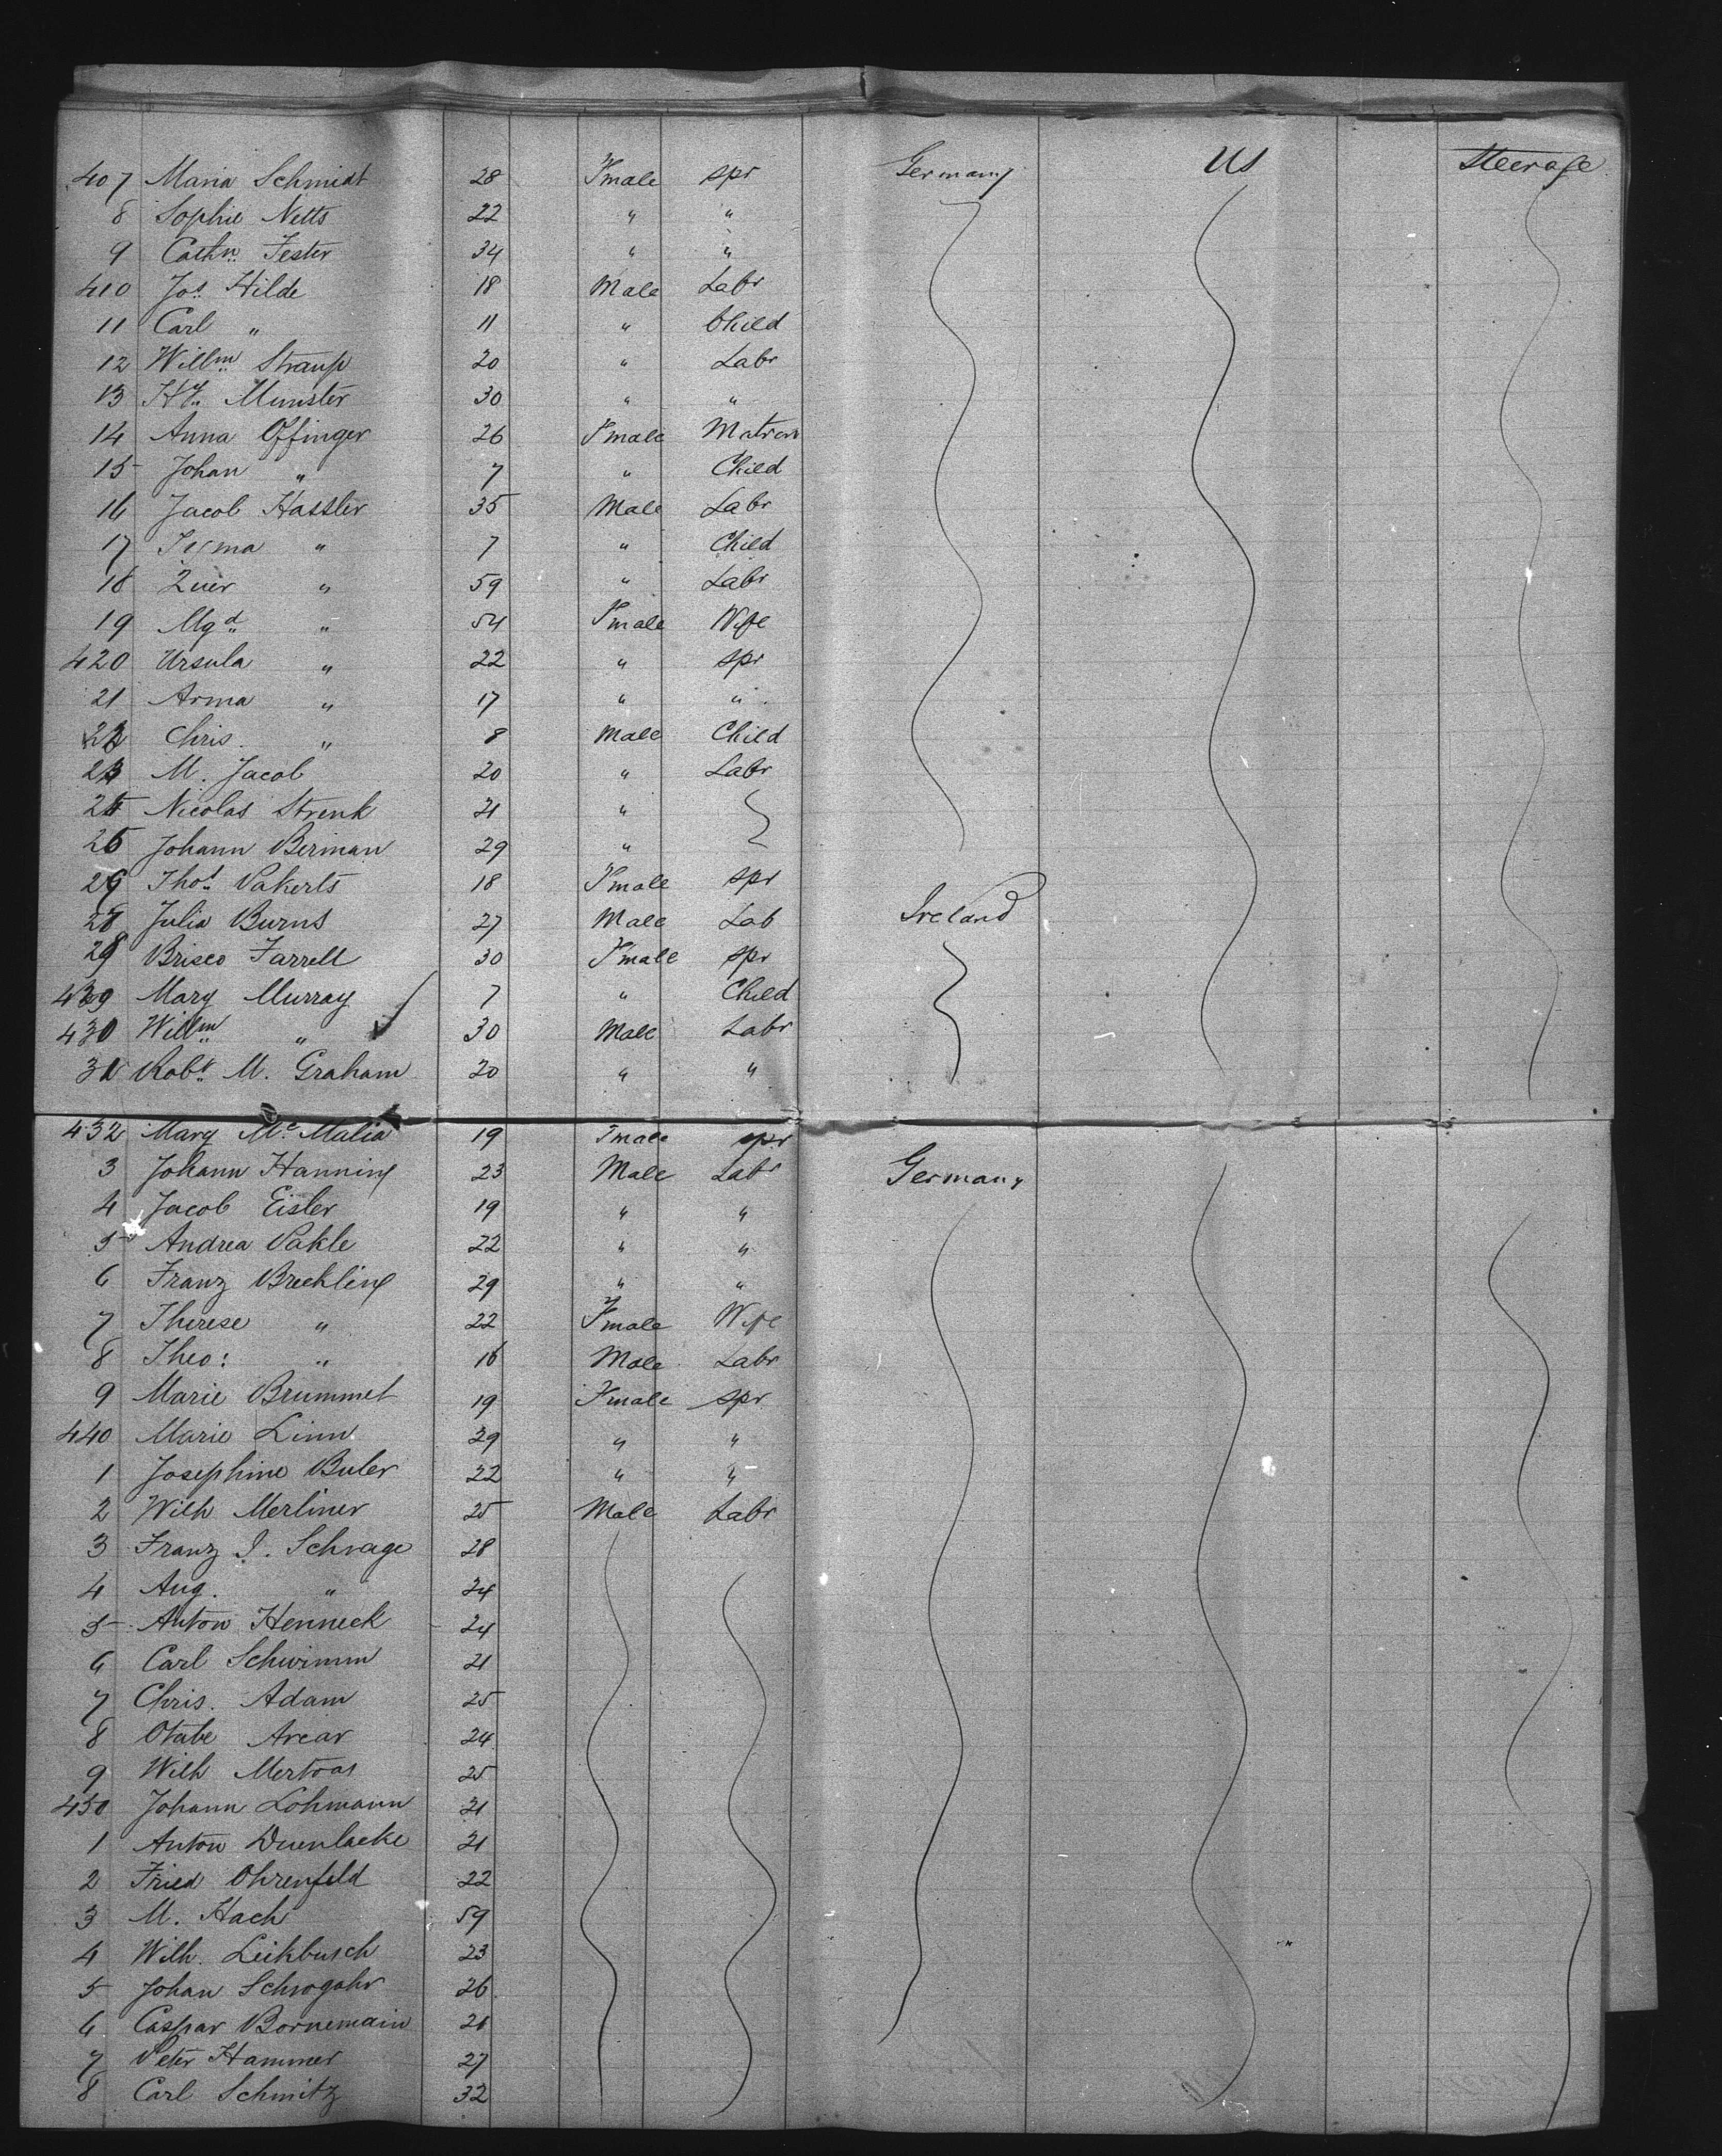 407 Maria Schmidt 28 Fmale spr Germany US Steerage
8 Sophie Netts 22 " "
9 Cathn Fester 34 " "
410 Jos Hilde 18 Male Labr
11 Carl " 11 " Child
12 Willm Straup 20 " Labr
13 Hy Munster 30 " "
14 Anna Offinger 26 Fmale Matron
15 Johan " 7 " Child
16 Jacob Hassler 35 Male Labr
17 " 7 " Child
18 Zuer " 59 " Labr
19 Mgd " 54 Fmale Wife
420 Ursula " 22 " spr
21 Arma " 17 " "
22 Chris. " 8 Male Child
23 M. Jacob 20 " Labr
24 Nicolas Strenk 21 "
25 Johann Berman 29 "
26 Thos Pakerts 18 Fmale spr
27 Julia Burns 27 Male Lab Ireland
28 Brisco Farrell 30 Fmale spr
429 Mary Murray 7 " Child
430 Willm " 30 Male Labr
31 Robt M. Graham 20 " "
432 Mary Mc Malia 19 Fmale spr
3 Johann Hanning 23 Male Labr Germany
4 Jacob Eisler 19 " "
5 Andrea Pakle 22 " "
6 Franz Brechling 29 " "
7 Therese " 22 Fmale Wife
8 Theo: " 16 Male Labr
9 Marie Brummet 19 Fmale spr
440 Marie Linn 29 " "
1 Josephine Buler 22 " "
2 Wilh Merliner 25 Male Labr
3 Franz J. Schrage 28
4 Aug. " 24
5 Anton Henneck 24
6 Carl Schwimm 21
7 Chris. Adam 25
8 Otabe Arcar 24
9 Wilh Mertoas 25
450 Johann Lohmann 21
1 Anton Duenlacke 21
2 Fried Ohrenfeld 22
3 M. Hach 59
4 Wilh. Leikbusch 23
5 Johan Schrogahr 26
6 Caspar Bornemain 21
7 Peter Hammer 27
8 Carl Schmitz 32